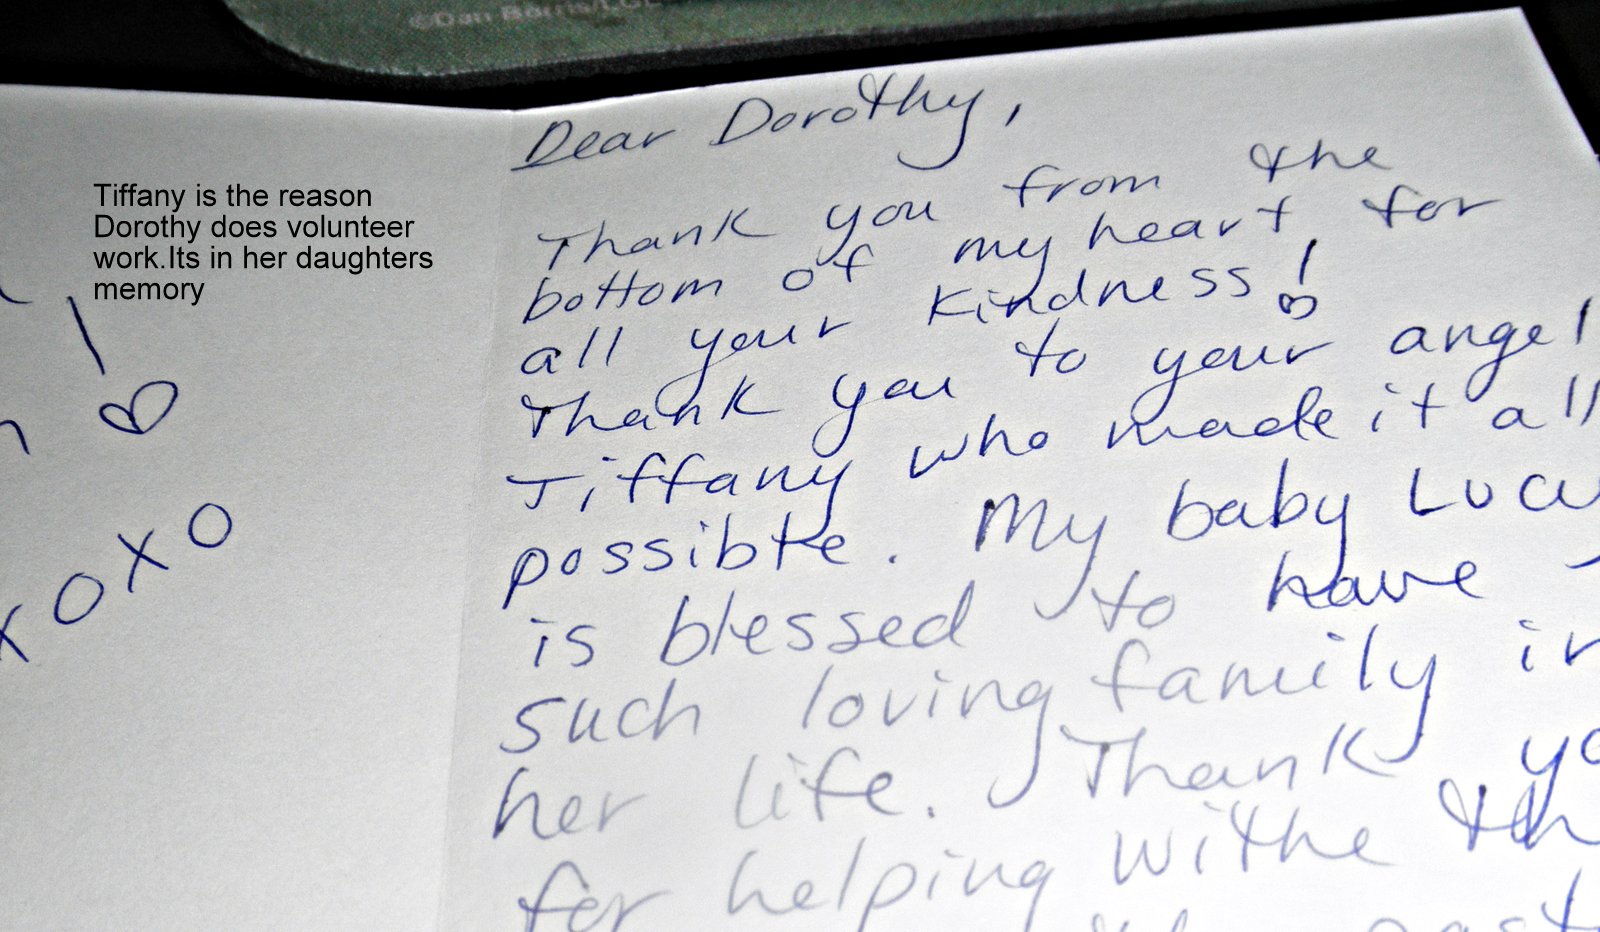 ©Dan Borris/LGL
Tiffany is the reason
Dorothy does volunteer
work.Its in her daughters
memory
xoxo
Dear Dorothy,
Thank you from the
bottom of my heart for
all your kindness!
Thank you to your angel
Tiffany who made it all
possible. My baby Lucy
is blessed to have
such loving family in
her life. Thank yo
for helping withe th